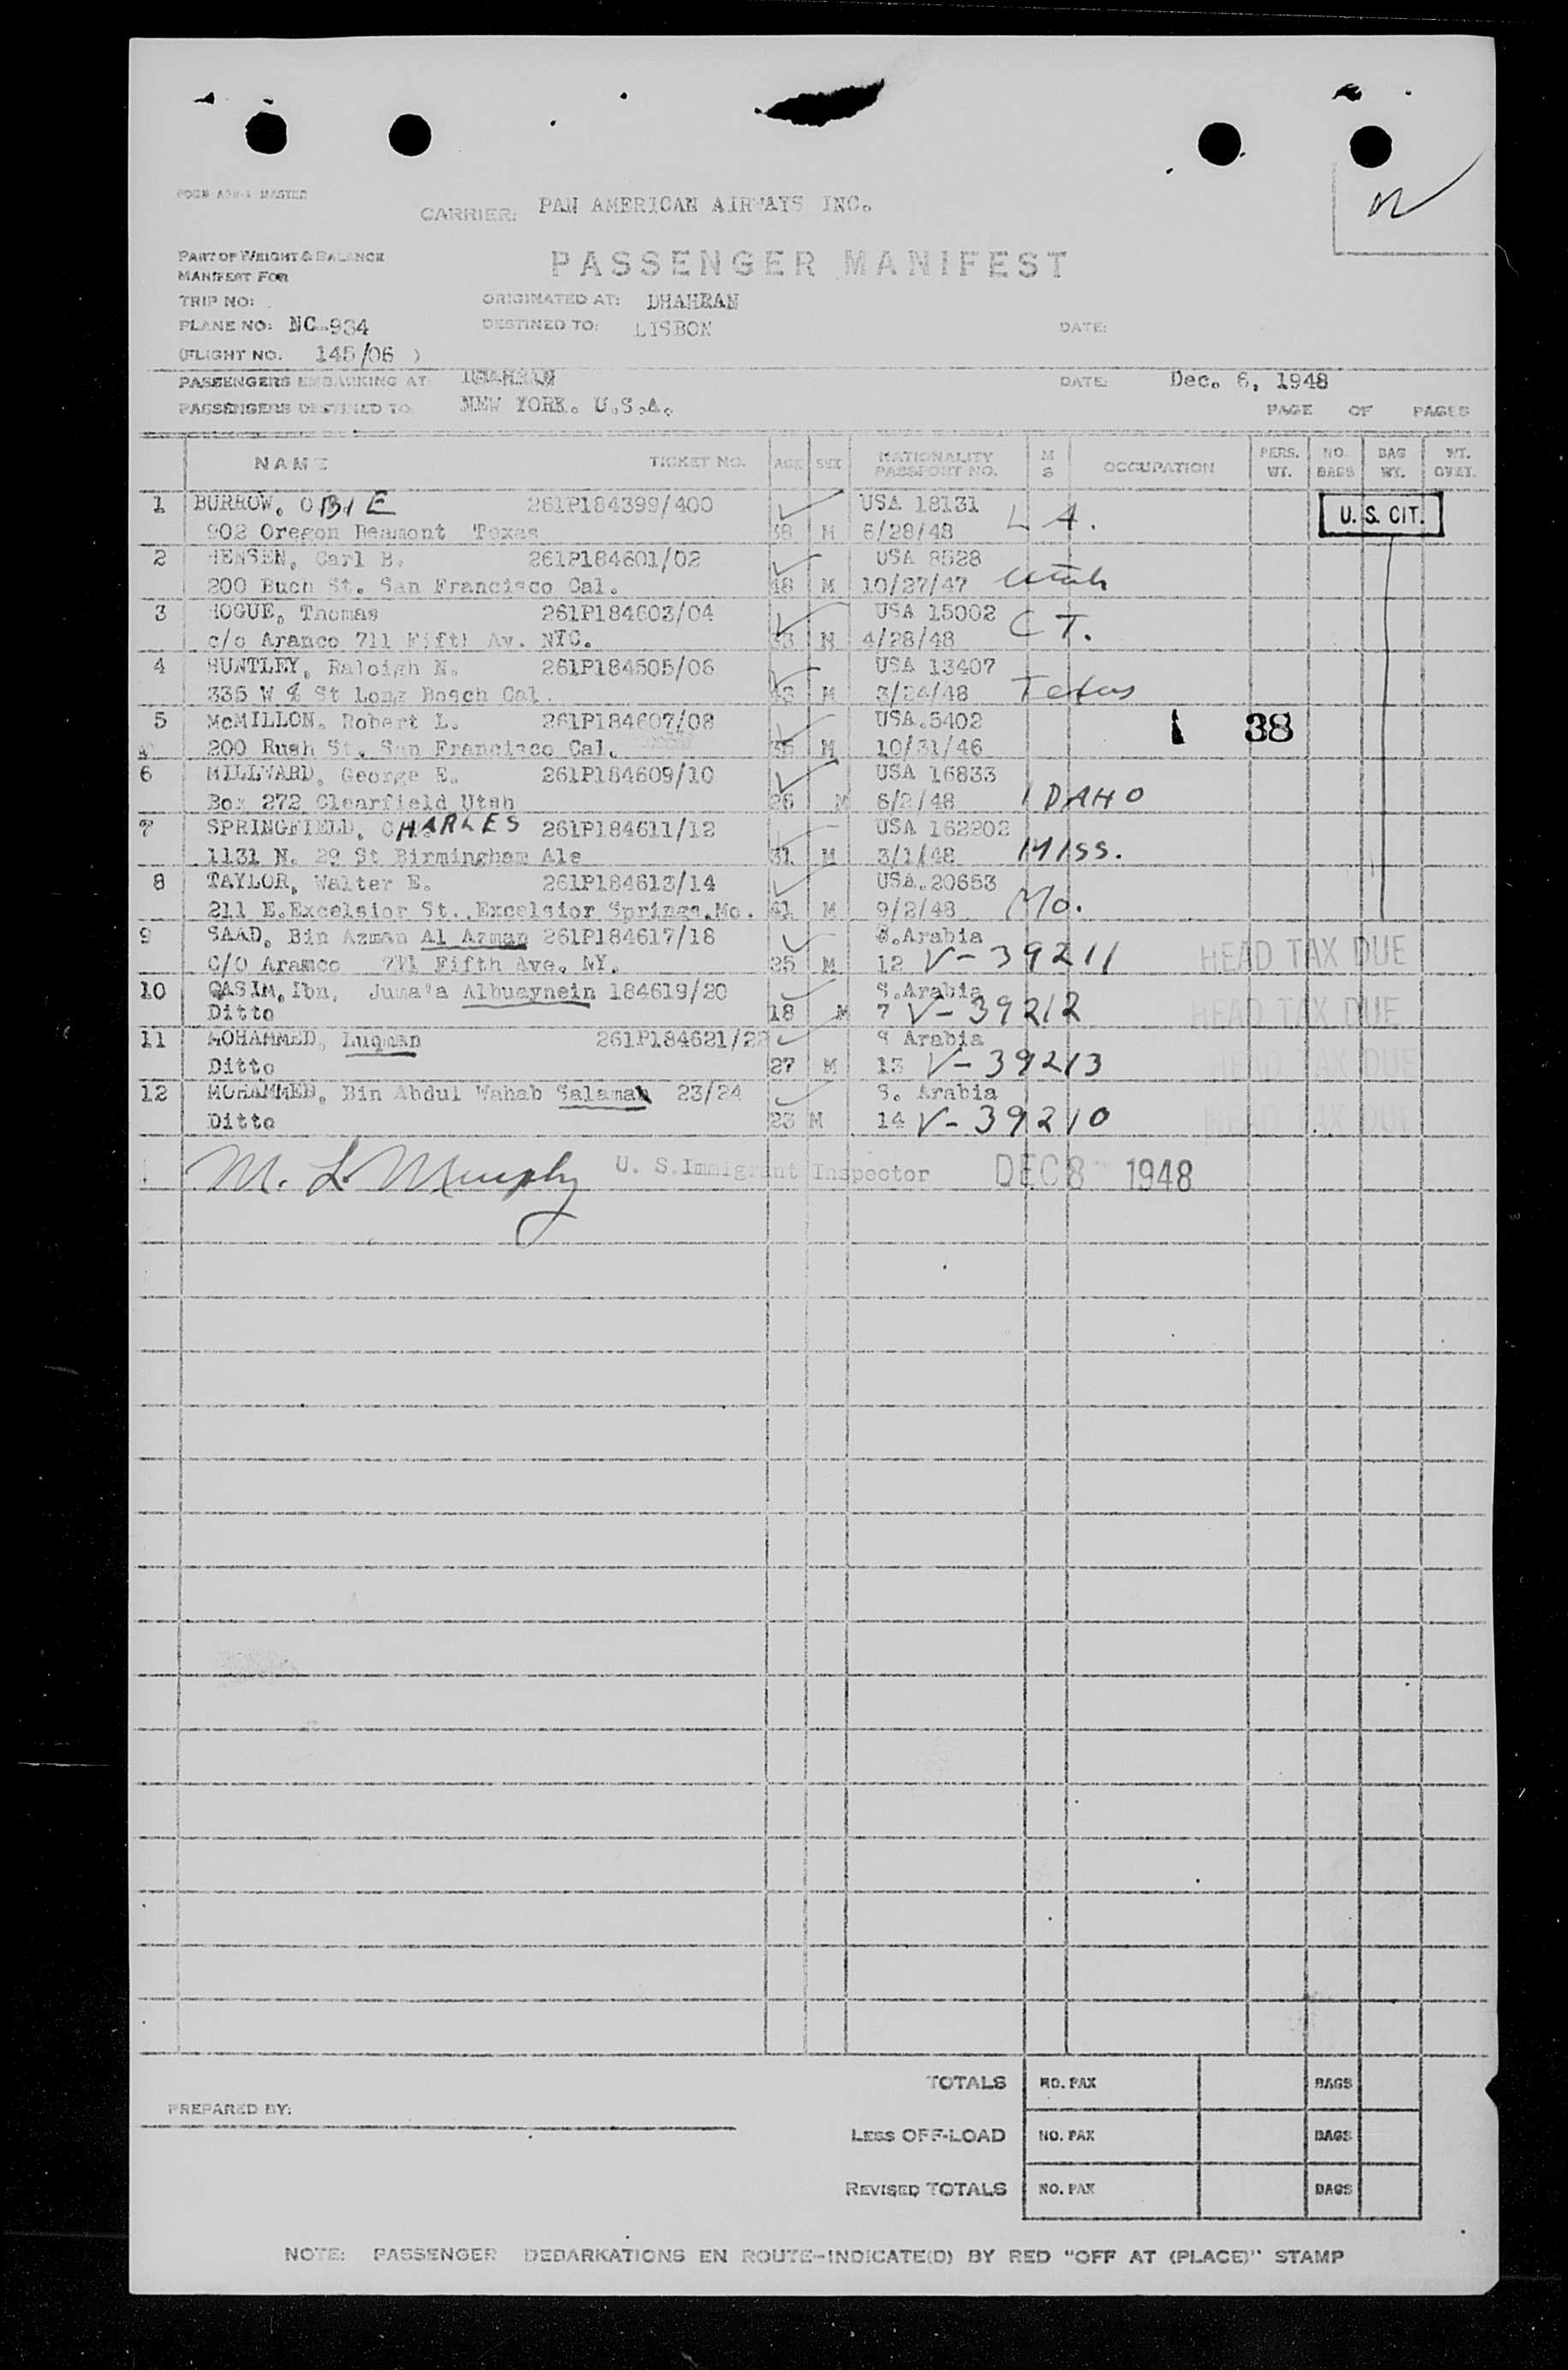 FORM MASTER
CARRIER: PAN AMERICAN AIRWAYS INC.
PART OF WEIGHT & BALANCE
MANIFEST FOR
PASSENGER MANIFEST
TRIP NO: ORIGINATED AT: DHAHRAN
PLANE NO: NC-934 DESTINED TO: LISBON DATE:
(FLIGHT NO. 145/06 )
PASSENGERS EMBARKING AT: DHAHRAN DATE: Dec. 6, 1948
PASSENGERS DESTINED TO: NEW YORK. U.S.A. PAGE OF PAGES
NAME TICKET NO. AGE SEX NATIONALITY PASSPORT NO. M S OCCUPATION PERS. WT. NO. BAGS BAG WT. WT. OVRT.
1 BURROW, OBIE 261P184399/400 USA 18131 LA. U. S. CIT.
902 Oregon Beamont Texas 38 M 6/28/48
2 HENSEN, Carl B. 261P184601/02 USA 8528
200 Buch St. San Francisco Cal. 48 M 10/27/47 Utah
3 HOGUE, Thomas 261P184603/04 USA 15002 CT.
c/o Aramco 711 Fifth Av. NYC. M 4/28/48
4 HUNTLEY, Raleigh N. 261P184505/06 USA 13407
335 W St Long Beach Cal. 43 M 3/24/48 Texas
5 McMILLON, Robert L. 261P184607/08 USA.5402 1 38
200 Rush St. San Francisco Cal. 35 M 10/31/46
6 MILLWARD, George E. 261P184609/10 USA 16833
Box 272 Clearfield Utah 26 M 6/2/48 IDAHO
7 SPRINGFIELD, CHARLES 261P184611/12 USA 162202
1131 N. 29 St Birmingham Ala 31 M 3/1/48 MISS.
8 TAYLOR, Walter E. 261P184613/14 USA.20653
211 E.Excelsior St. Excelsior Springs.Mo. 41 M 9/2/48 Mo.
9 SAAD, Bin Azman Al Azman 261P184617/18 S.Arabia
C/O Aramco 711 Fifth Ave. NY. 25 M 12 V-39211 HEAD TAX DUE
10 QASIM, Ibn, Juma'a Albuaynein 184619/20 S.Arabia
Ditto 18 M 7 V-39212 HEAD TAX DUE
11 MOHAMMED, Luqman 261P184621/22 S Arabia
Ditto 27 M 13 V-39213 HEAD TAX DUE
12 MOHAMMED, Bin Abdul Wahab Salamah 23/24 S. Arabia
Ditto 23 M 14 V-39210 HEAD TAX DUE
M. L. Murphy U. S. Immigrant Inspector DEC 8 1948
TOTALS NO. PAX BAGS
PREPARED BY:
LESS OFF-LOAD NO. PAX BAGS
REVISED TOTALS NO. PAX BAGS
NOTE: PASSENGER DEBARKATIONS EN ROUTE-INDICATE(D) BY RED "OFF AT (PLACE)" STAMP